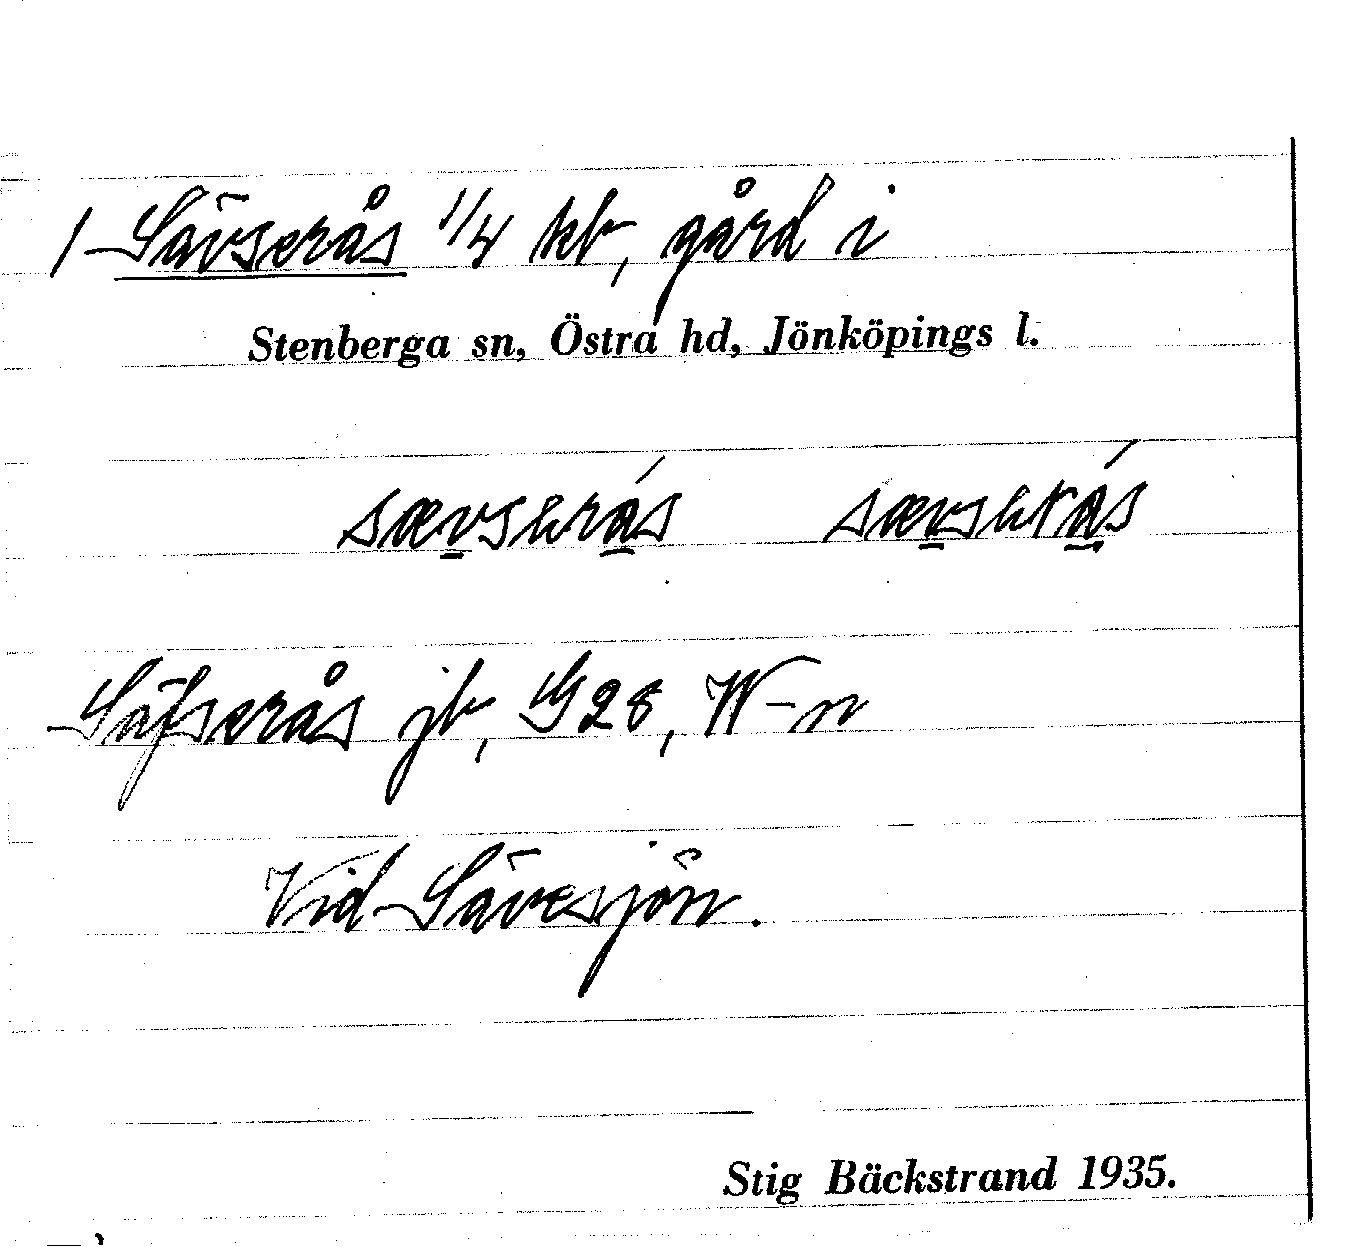 / Sävserås 1/4 kb, gård i
Stenberga sn, Östra hd, Jönköpings l.
sævserás sævserás
Säfserås jb, G28, W-n
Vid Sävesjön.
Stig Bäckstrand 1935.